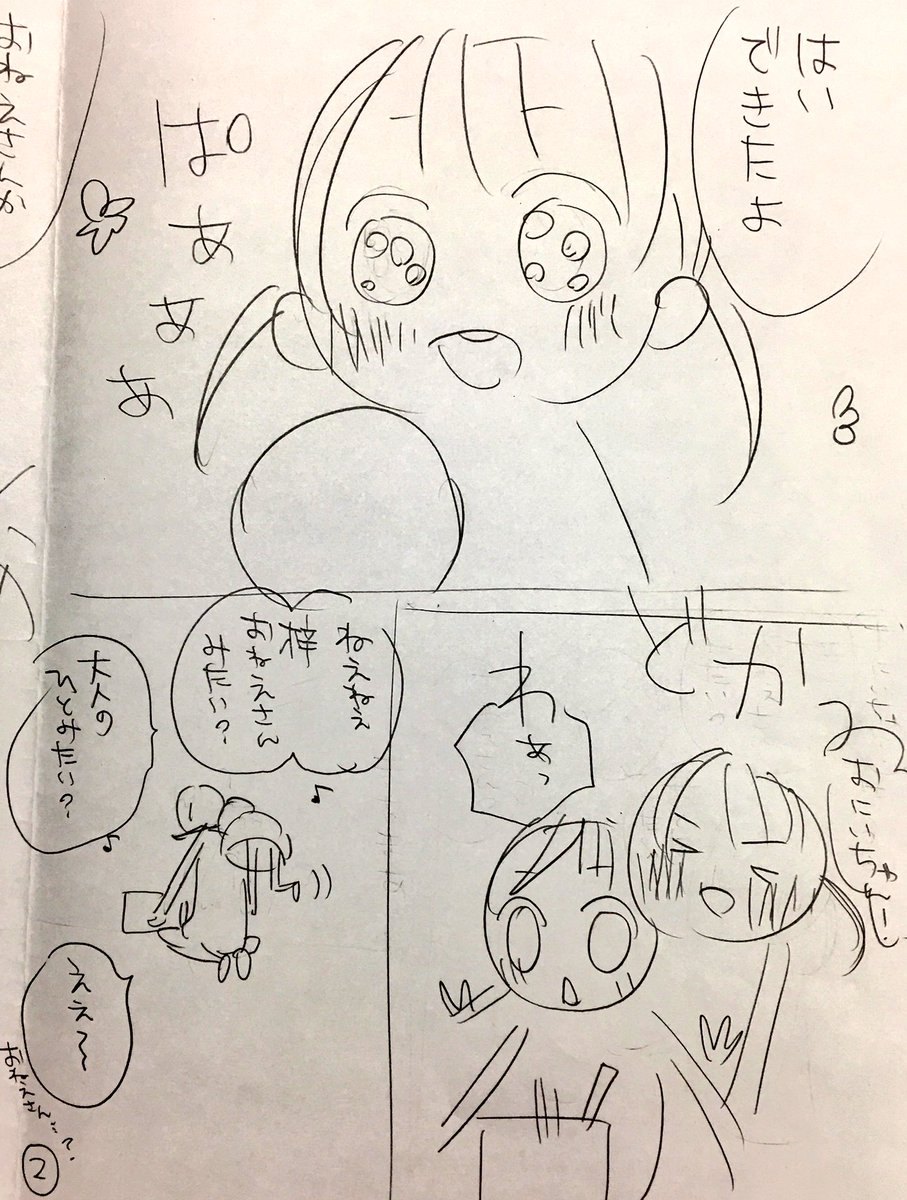 はい
できたよ
ぱぁぁぁ
おにいちゃんー!
わ
あっ
ねえねえ
梓
おねえさん
みたい?
♪
大人の
ひとみたい?
♪
ええ〜
おねえさん…?
おねえさんか
2